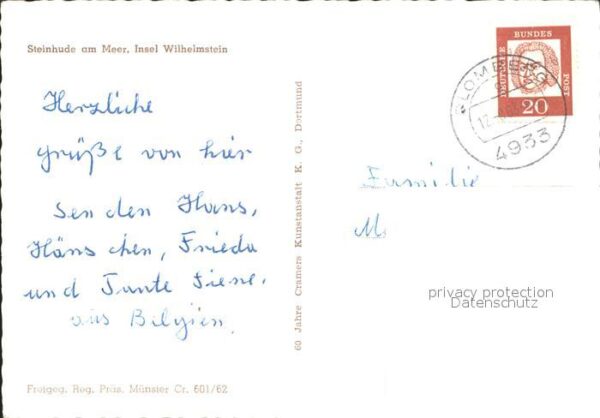 Steinhude am Meer, Insel Wilhelmstein
Herzliche
grüße von hier
sen den Hans,
Häns chen, Frieda
und Tante Siene.
aus Belgien.
60 Jahre Cramers Kunstanstalt K. G., Dortmund
DEUTSCHE BUNDES POST
20
BLOMBERG
4933
Familie
M
privacy protection
Datenschutz
Freigeg. Reg. Präs. Münster Cr. 601/62